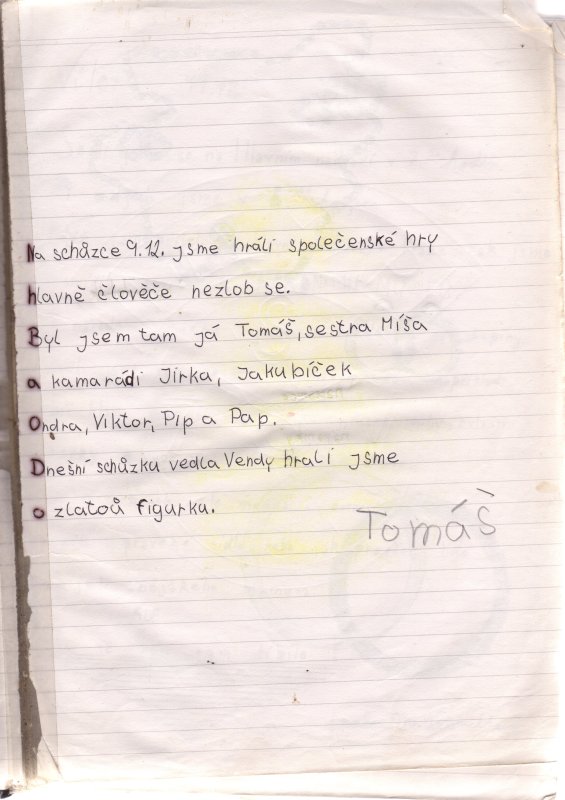 Na schůzce 9.12. jsme hráli společenské hry
hlavně člověče nezlob se.
Byl jsem tam já Tomáš, sestra Míša
a kamarádi Jirka, Jakubíček
Ondra, Viktor, Pip a Pap.
Dnešní schůzku vedla Vendy hrali jsme
o zlatoů figurku.
Tomáš